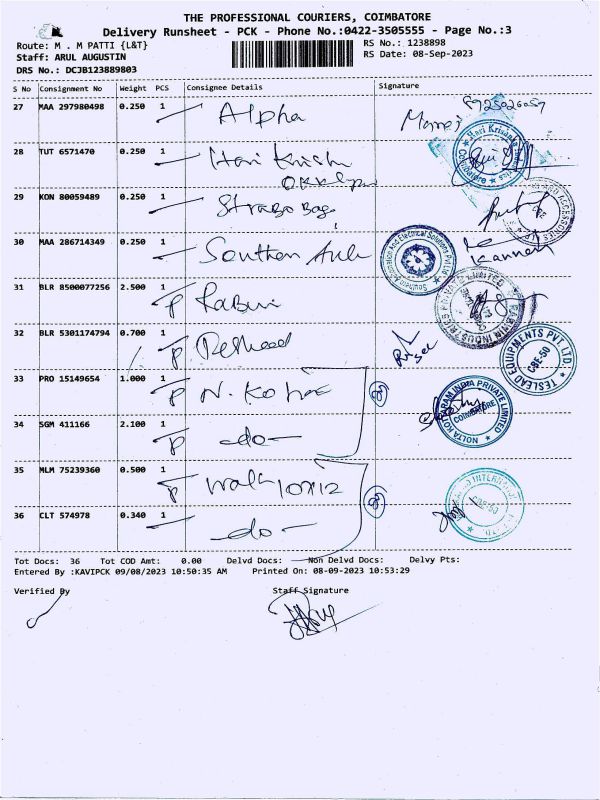 THE PROFESSIONAL COURIERS, COIMBATORE
Delivery Runsheet - PCK - Phone No.:0422-3505555 - Page No.:3
Route: M . M PATTI {L&T} RS No.: 1238898
Staff: ARUL AUGUSTIN RS Date: 08-Sep-2023
DRS No.: DCJB123889803
S No Consignment No Weight PCS Consignee Details Signature
27 MAA 297980498 0.250 1 Alpha
28 TUT 6571470 0.250 1 Hari
29 KON 80059489 0.250 1
30 MAA 286714349 0.250 1 Southern
Southern Automation And Electrical Solutions Pvt Ltd
Kannan
31 BLR 8500077256 2.500 1
INDUSTRIES PRIVATE LIMITED
32 BLR 5301174794 0.700 1
TESLEAD EQUIPMENTS PVT LTD.
CBE-50
33 PRO 15149654 1.000 1
NOLTA KOHARAM INDIA PRIVATE LIMITED
COIMBATORE
34 SGM 411166 2.100 1 -do-
35 MLM 75239360 0.500 1
CBE-50
36 CLT 574978 0.340 1 -do-
Tot Docs: 36 Tot COD Amt: 0.00 Delvd Docs: Non Delvd Docs: Delvy Pts:
Entered By :KAVIPCK 09/08/2023 10:50:35 AM Printed On: 08-09-2023 10:53:29
Verified By Staff Signature